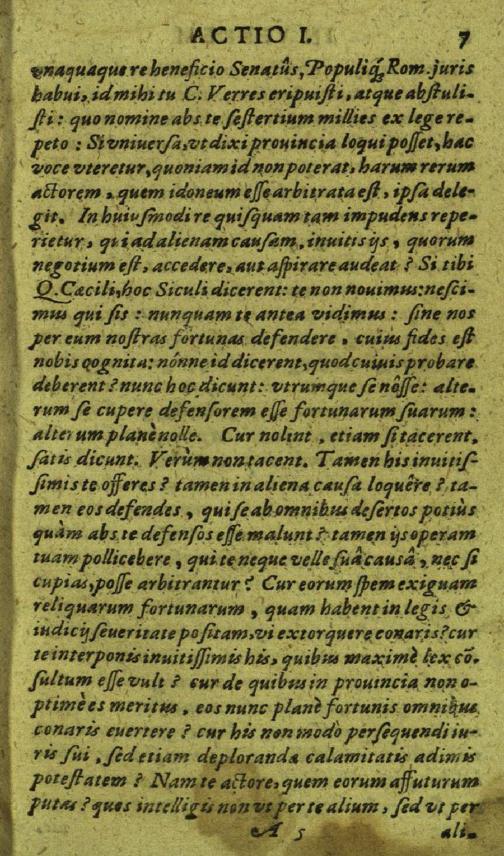 ACTIO I. 7
vnaquaque re beneficio Senatûs, Populiq́; Rom. juris
habui, id mihi tu C. Verres eripuisti, atque abstuli-
sti: quo nomine abs te sestertium millies ex lege re-
peto: Si vniversa, vt dixi provincia loqui posset, hac
voce vteretur, quoniam id non poterat, harum rerum
actorem, quem idoneum esse arbitrata est, ipsa dele-
git. In huiusmodi re quisquam tam impudens repe-
rietur, qui ad alienam causam, invitis ijs, quorum
negotium est, accedere, aut aspirare audeat? Si tibi
Q. Cæcili, hoc Siculi dicerent: te non nouimus: nesci-
mus qui sis: nunquam te antea vidimus: sine nos
per eum nostras fortunas defendere, cuius fides est
nobis cognita: nónne id dicerent, quod cuiuis probare
deberent? nunc hoc dicunt: vtrumque se nôsse: alte-
rum se cupere defensorem esse fortunarum suarum:
alterum planè nolle. Cur nolint, etiam si tacerent,
satis dicunt. Verùm non tacent. Tamen his inuitis-
simis te offeres? tamen in aliena causa loquêre? ta-
men eos defendes, qui se ab omnibus desertos potiùs
quàm abs te defensos esse malunt? tamen ijs operam
tuam pollicebere, qui te neque velle suâ causâ, nec si
cupias, posse arbitrantur? Cur eorum spem exiguam
reliquarum fortunarum, quam habent in legis &
iudicij seueritate positam, vi extorquere conaris? cur
te interponis inuitissimis his, quibus maximè lex cõ-
sultum esse vult? cur de quibus in prouincia non o-
ptimè es meritus, eos nunc planè fortunis omnibus
conaris euertere? cur his non modò persequendi iu-
ris sui, sed etiam deplorandæ calamitatis adimis
potestatem? Nam te actore, quem eorum affuturum
putas? quos intelligis non vt per te alium, sed vt per
A 5 ali-